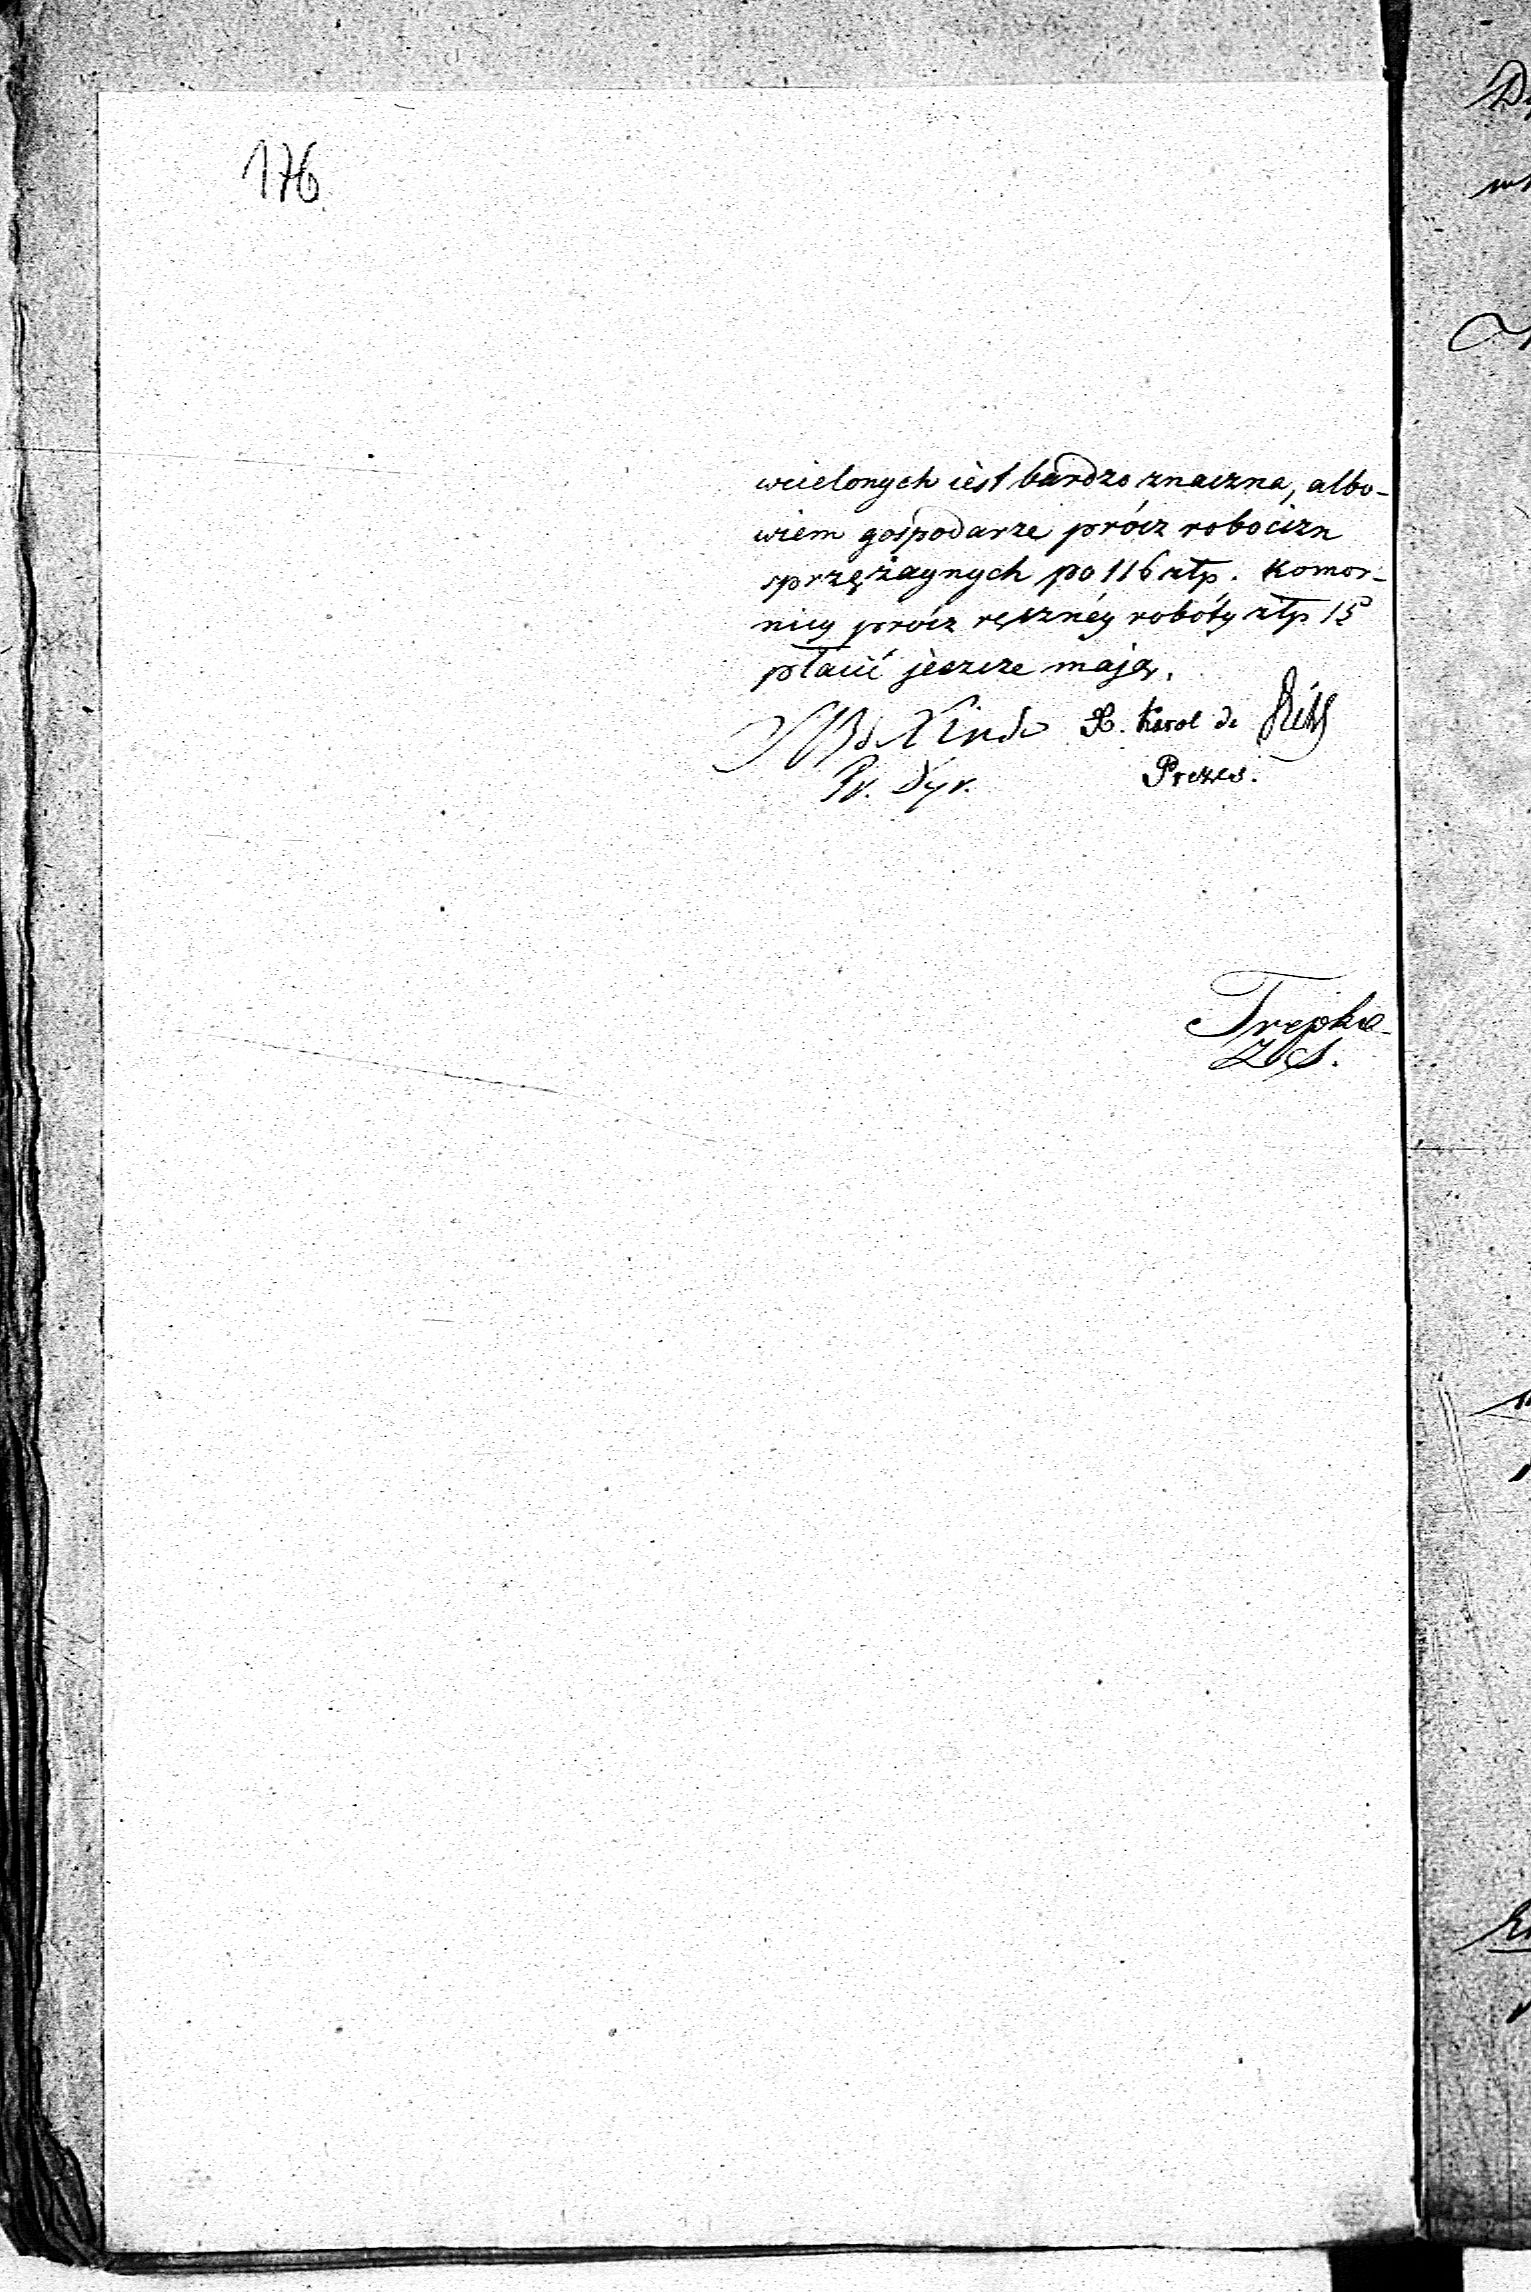 176
wcielonych iest bardzo znaczna, albo-
wiem gospodarze prócz robocizn
sprzężaynych po 116 złp. komor-
nicy prócz ręcznéy roboty złp 15
płacić jeszcze mają.
X. Karol de
Pr. Dyr. Prezes.
Trepka